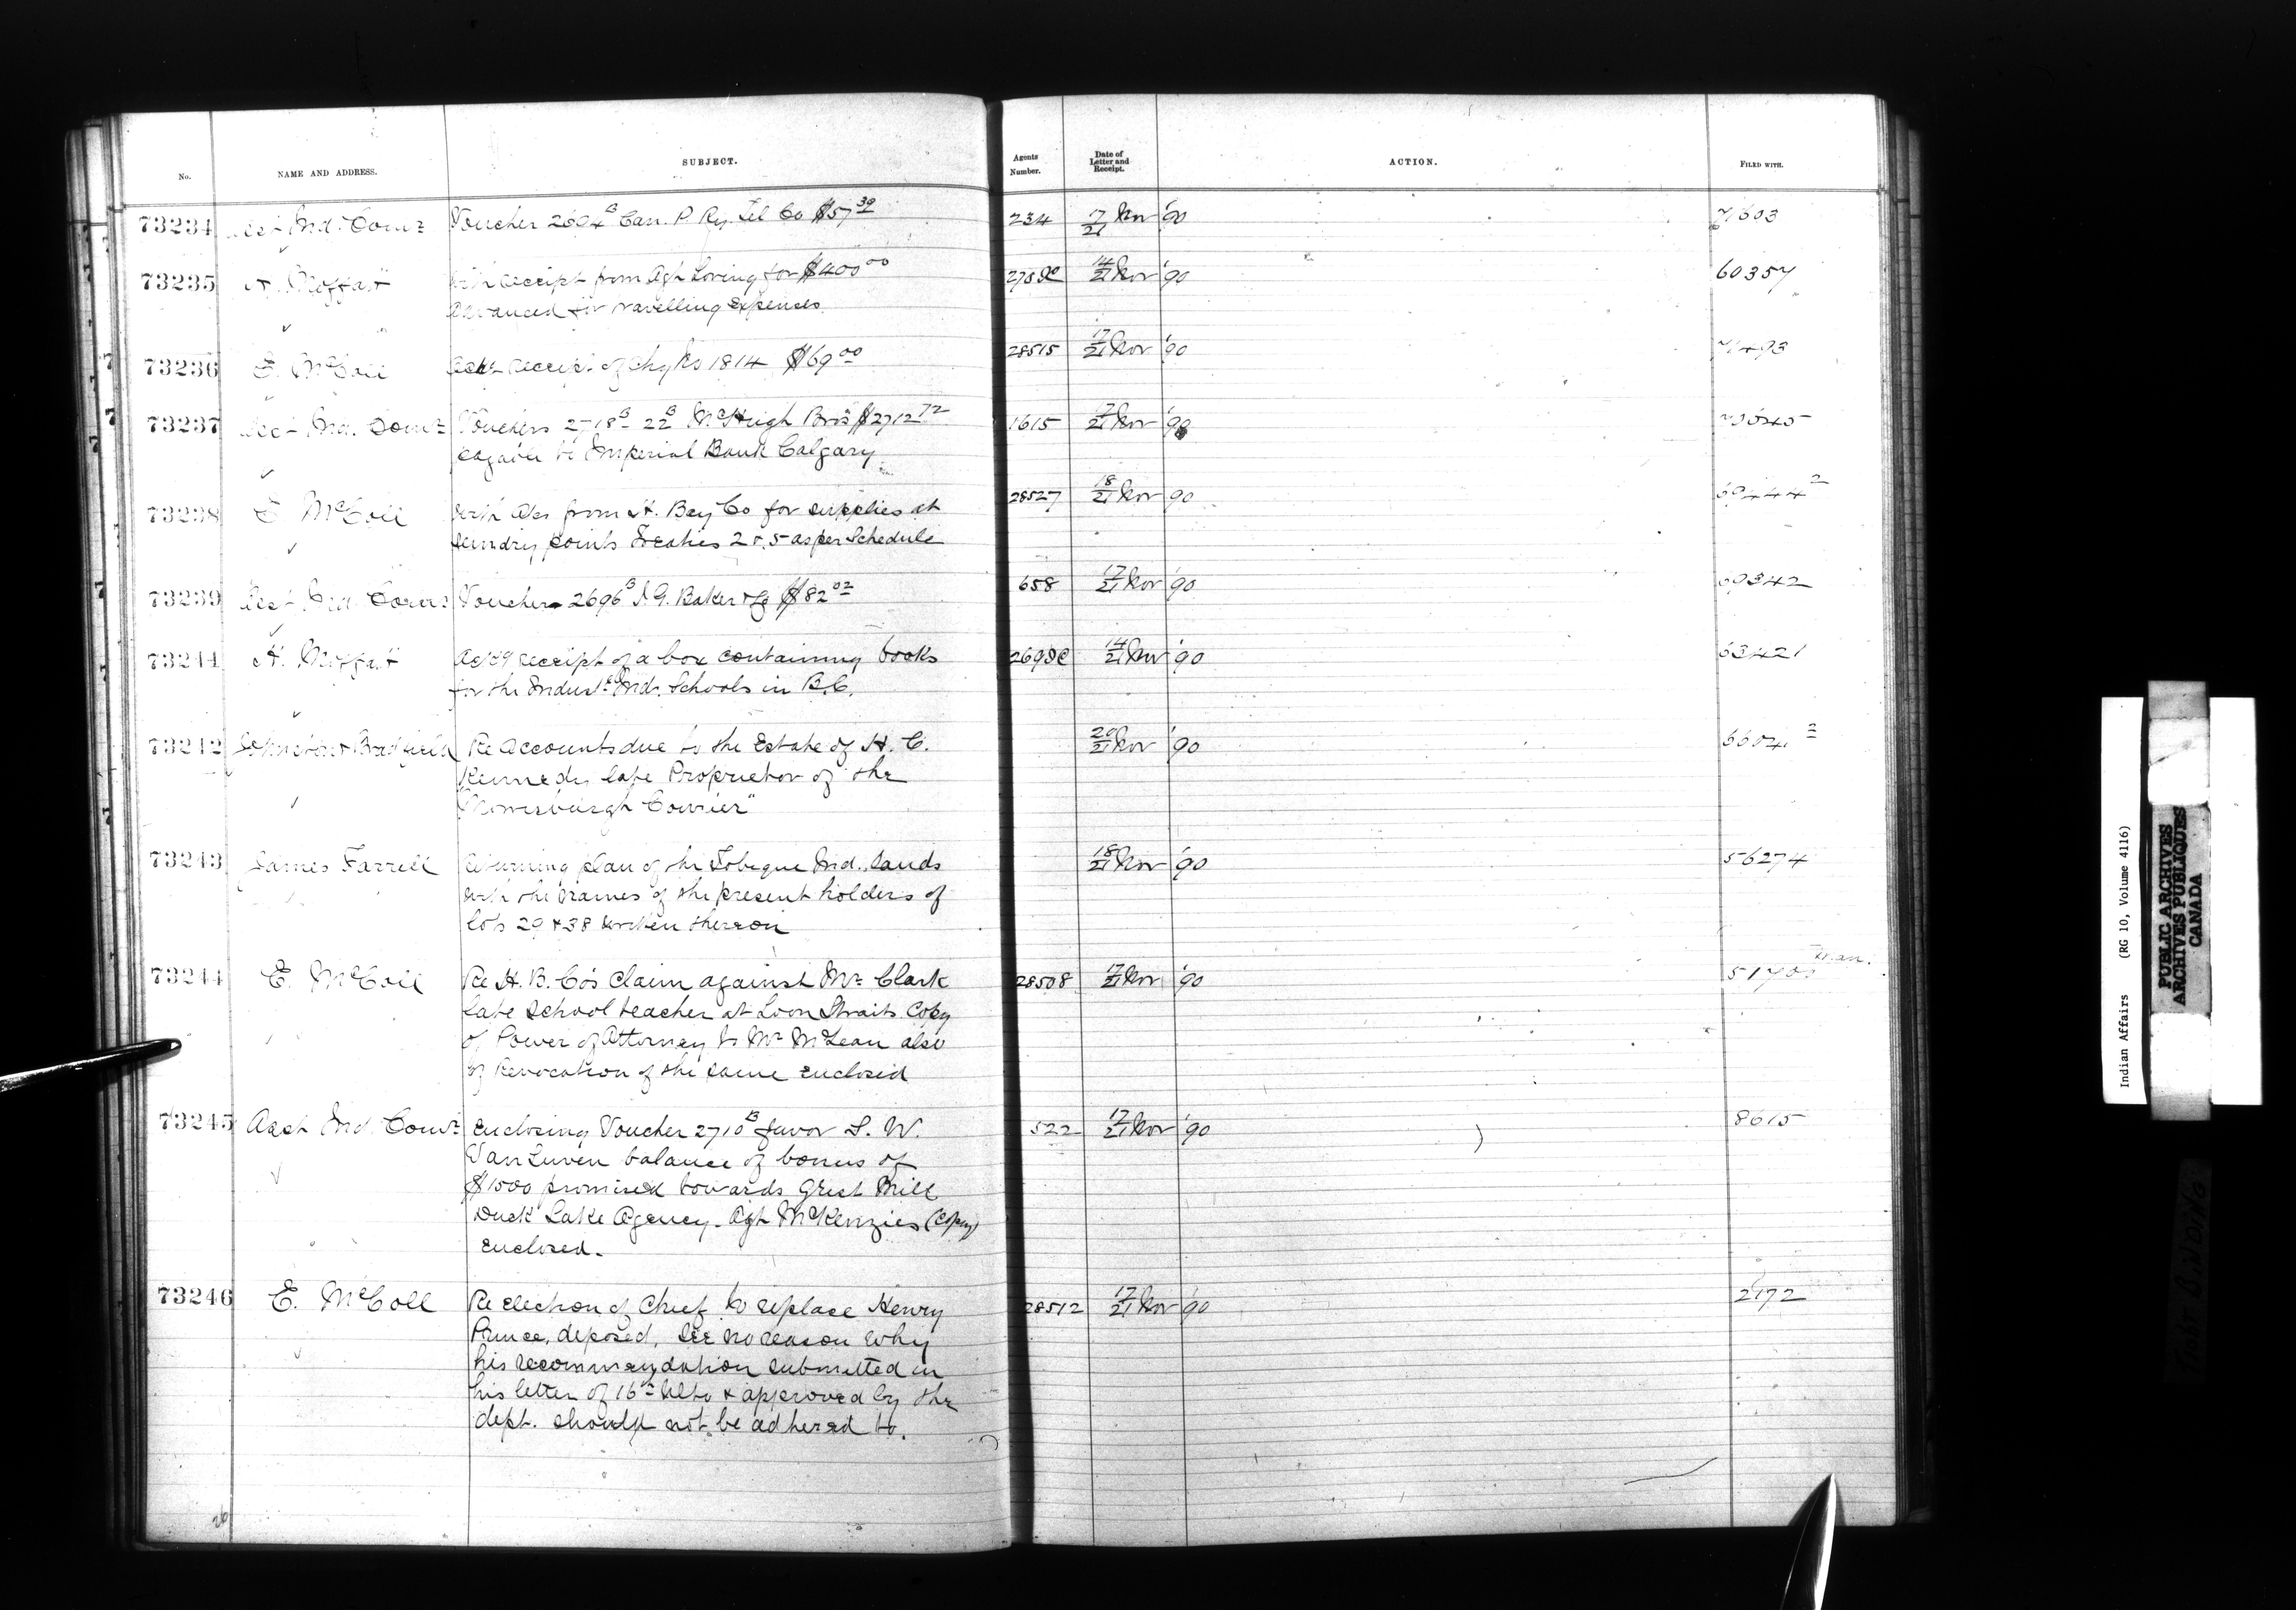 No. NAME AND ADDRESS. SUBJECT. Agents Number. Date of Letter and Receipt. ACTION. FILED WITH.
73234 Ind. Comr Voucher 2694B Can. P. Ry. Tel Co $57.30 234 17/21 Nov '90 71603
73235 H. Moffatt With receipt from Agt Loring for $400.00 14/21 Nov '90 60357
advanced for travelling expenses
73236 E. McColl receipt of chq No 1814 $69.00 28515 17/21 Nov '90 71493
73237 Asst Ind. Comr Vouchers 2718B 22B McHugh Bros $2712.72 1615 17/21 Nov '90
payable to Imperial Bank Calgary
73238 E McColl With a/cs from H. Bay Co for supplies at 28527 18/21 Nov 90 69444 2
sundry points Treaties 2 & 5 as per Schedule
73239 Asst Ind. Comr Voucher 2696B I. G. Baker & Co $82.02 658 17/21 Nov '90 69342
73241 H. Moffatt Ack'g receipt of a box containing books 14/21 Nov '90 63421
for the Industl Ind. Schools in B.C.
73242 Bradfield Re Accounts due to the Estate of H. C. 20/21 Nov '90
Kennedy late Proprietor of the
"Morrisburgh Courier"
73243 James Farrell Returning plan of the Tobique Ind. lands 18/21 Nov '90 56274
with the names of the present holders of
lots 29 & 38 written thereon
73244 E. McColl Re H. B. Co's Claim against Mr Clark 28508 17/21 Nov '90 Man.
late School teacher at Loon Straits. Copy
of Power of Attorney to Mr McLean also
of Revocation of the same enclosed
73245 Asst Ind. Comr Enclosing Voucher 2710B favor S. W. 522 17/21 Nov '90 8615
Van Luven balance of bonus of
$1500 promised towards Grist Mill
Duck Lake Agency. Agt McKenzies (copy)
enclosed.
73246 E. McColl Re election of Chief to replace Henry 28512 17/21 Nov '90 2172
Prince, deposed, see no reason why
his recommendation submitted in
his letter of 16th Ulto & approved by the
dept. should not be adhered to.
26
Indian Affairs (RG 10, Volume 4116)
PUBLIC ARCHIVES
ARCHIVES PUBLIQUES
CANADA